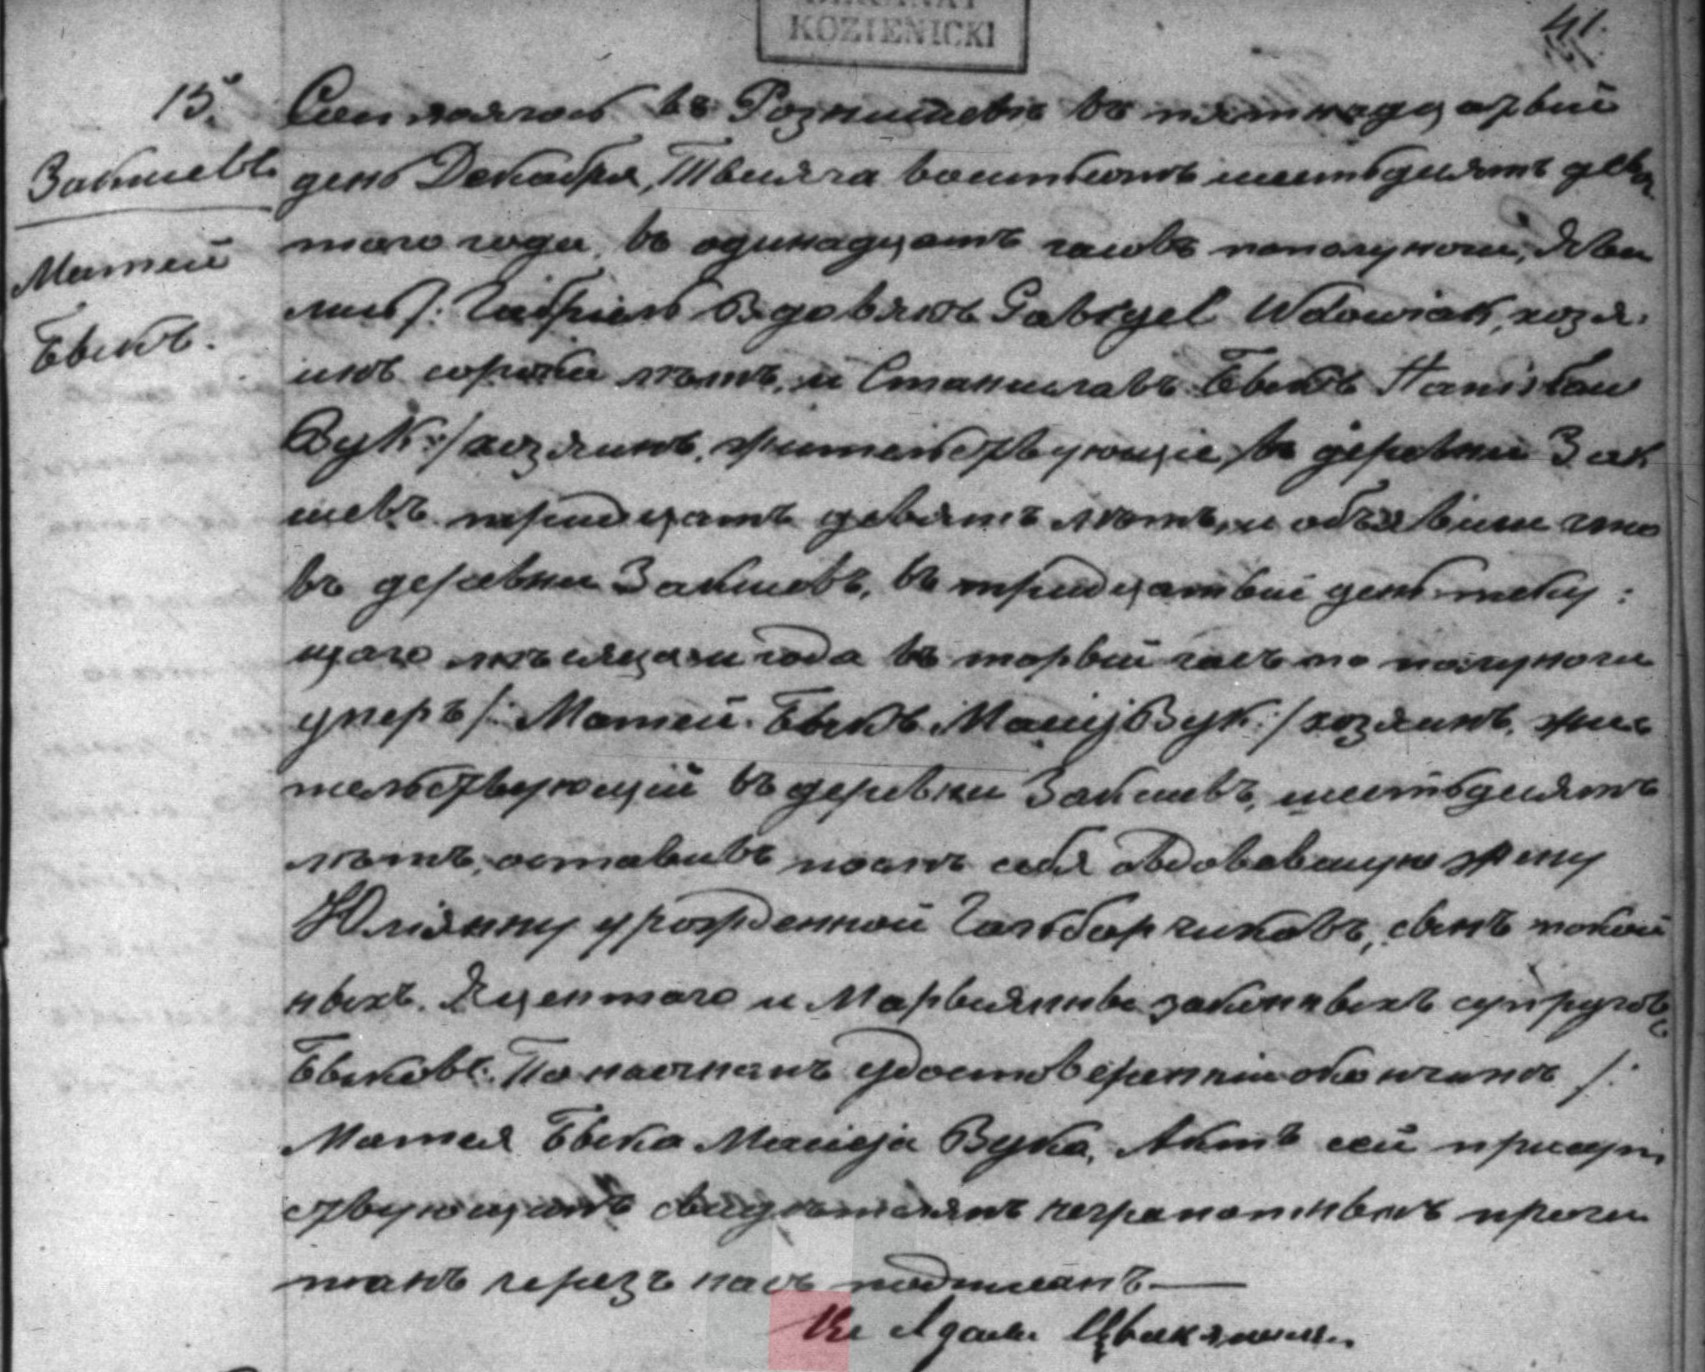 DEKANAT
KOZIENICKI
41.
15.
Закшевъ
Матей
Быкъ.
Состоялось въ Рознишевѣ въ пятнадцатый
день Декабря, Тысяча восемьсотъ шестьдесятъ девя
таго года, въ одинадцать часовъ пополуночи, Яви
лись /: Габріель Вдовякъ Gabryel Wdowiak, хозя
инъ сорокъ лѣтъ, и Станиславъ Быкъ Stanisław
Byk :/ хозяинъ, жительствующіе въ деревни Зак
шевъ тридцать девять лѣтъ, и объявили что
въ деревни Закшевъ, въ тридцатый день теку:
щаго мѣсяца и года въ торвый часъ по полуночи
умеръ /: Матей Быкъ Maciej Byk :/ хозяинъ, жи
тельствующій въ деревни Закшевъ, шестьдесятъ
лѣтъ, оставивъ послѣ себя овдовевшую жену
Юліянну урожденной, сынъ покой
ныхъ Яцентаго и Марыянны законныхъ супруговъ
Быковъ. По настномъ удостовереніи о кончинѣ /:
Матея Быка Macieja Byka, Актъ сей присут
ствующимъ свидѣтелямъ неграмотнымъ прочи
танъ черезъ насъ подписанъ.—
Кс Адамъ